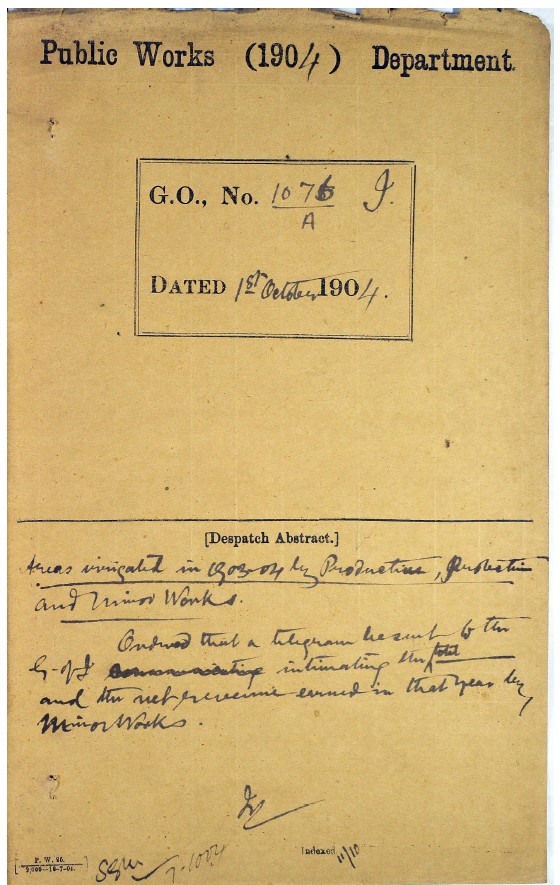 Public Works (1904) Department.
G.O., No. 1075 I.
A
DATED 1st October 1904.
[Despatch Abstract.]
Areas irrigated in 1903-04 by Productive, Protective
and Minor Works.
Ordered that a telegram be sent to the
G. of I communicating intimating the total
and the net revenue earned in that year by
Minor Works.
Indexed 11/10
P. W. 26.